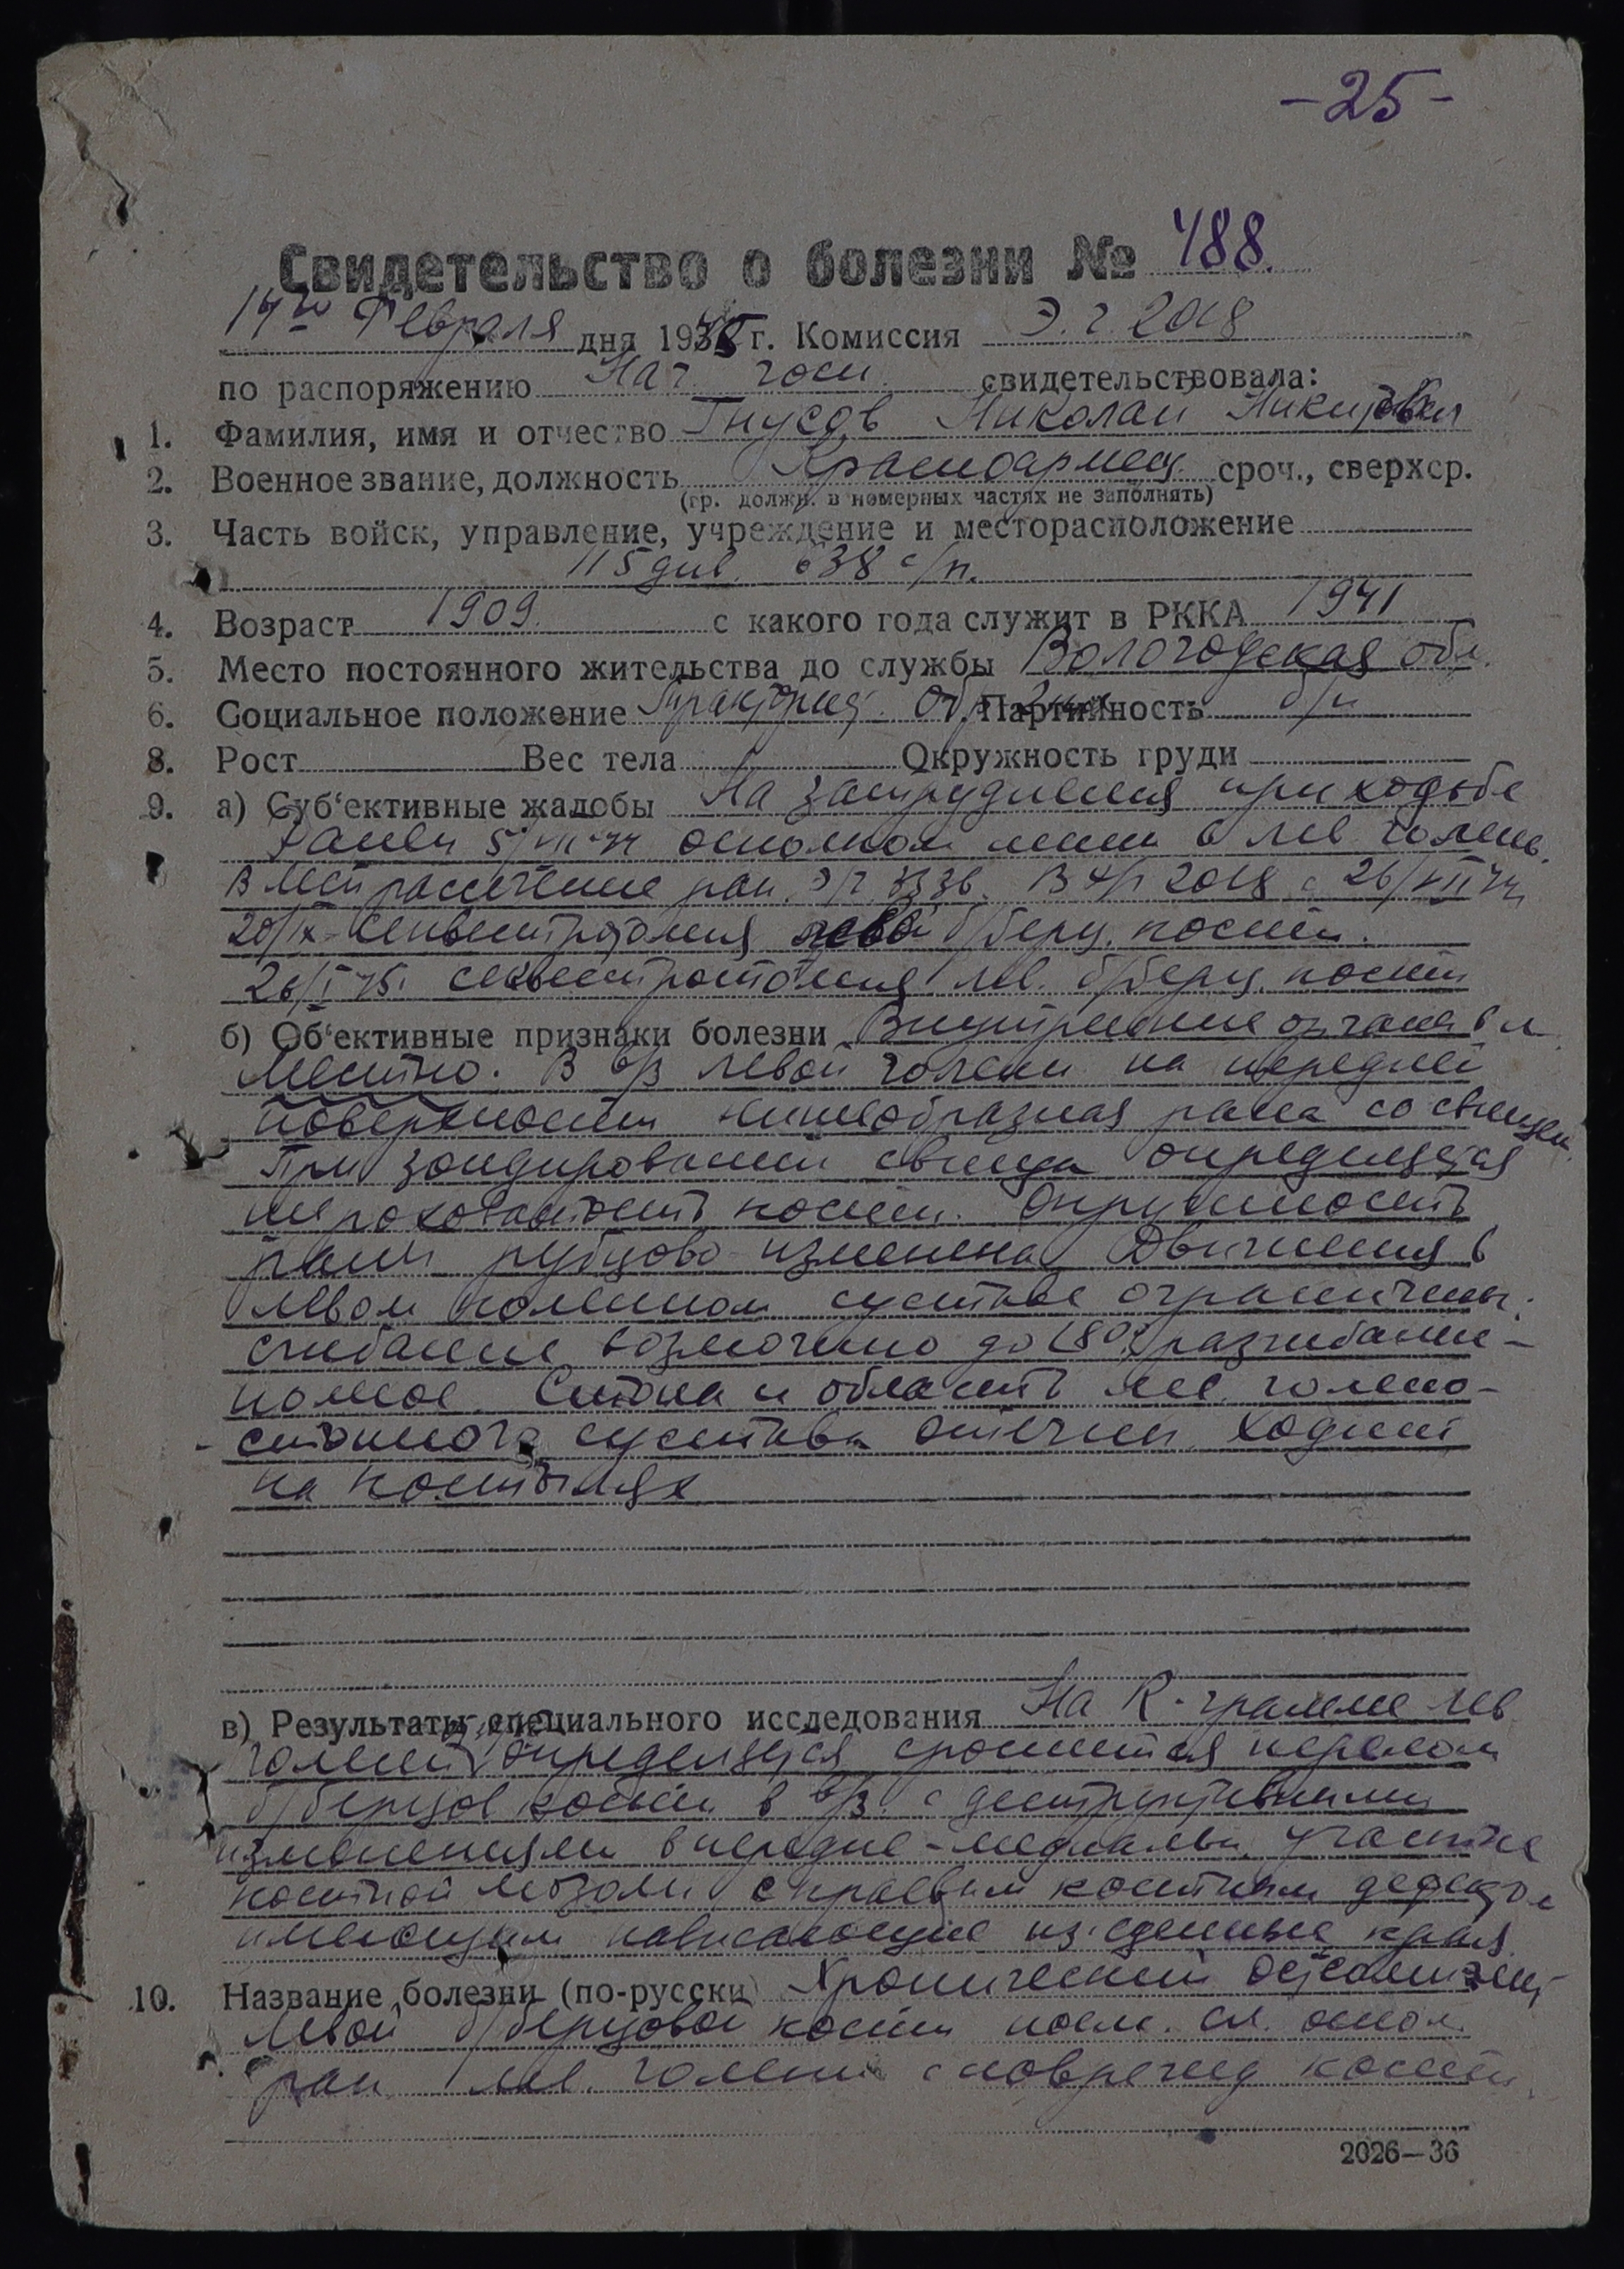 -25-
Свидетельство о болезни № 488.
14го Февраля дня 1945 г. Комиссия Э.г. 2018
по распоряжению Нач. госп. свидетельствовала:
1. Фамилия, имя и отчество Гнусов Николай Никитович
2. Военное звание, должность Красноармеец. сроч., сверхср.
(гр. должн. в номерных частях не заполнять)
3. Часть войск, управление, учреждение и месторасположение
115 див. 638 с/п.
4. Возраст 1909. с какого года служит в РККА 1941
5. Место постоянного жительства до службы Вологодская обл.
6. Социальное положение Тракторист. Обр. Партийность б/п
8. Рост Вес тела Окружность груди
9. а) Суб‘ективные жалобы На затруднения при ходьбе
Ранен 5/VII-44 осколком мины в лев голень.
В мед рассечение ран. Э/г 3336. В э/г 2018 с 26/VII 44
20/IX секвестротомия левой б/берц. кости.
26/I 45. секвестротомия лев. б/берц. кости
б) Об‘ективные признаки болезни Внутренние органы в н.
Местно. В в/з левой голени на передней
поверхности линеобразная рана со свищем.
При зондировании свища определяется
шероховатость кости. Окружность
раны рубцово изменена. Движения в
левом коленном суставе ограничены:
сгибание возможно до 80°, разгибание-
полное. Стопа и область лев. голено-
стопного сустава отечны. Ходит
на костылях
в) Результаты специального исследования На R-грамме лев
голени определяется сросшийся перелом
б/берцов кости в в/з. с деструктивными
изменениями в передне-медиальн. участке
костной мозоли с краевым костным дефектом
имеющим нависающие из‘еденные края.
10. Название болезни (по-русски) Хронический остеомиэлит
левой б/берцовой кости посл. сл. оскол.
ран. лев. голени с поврежд кости.
2026—36